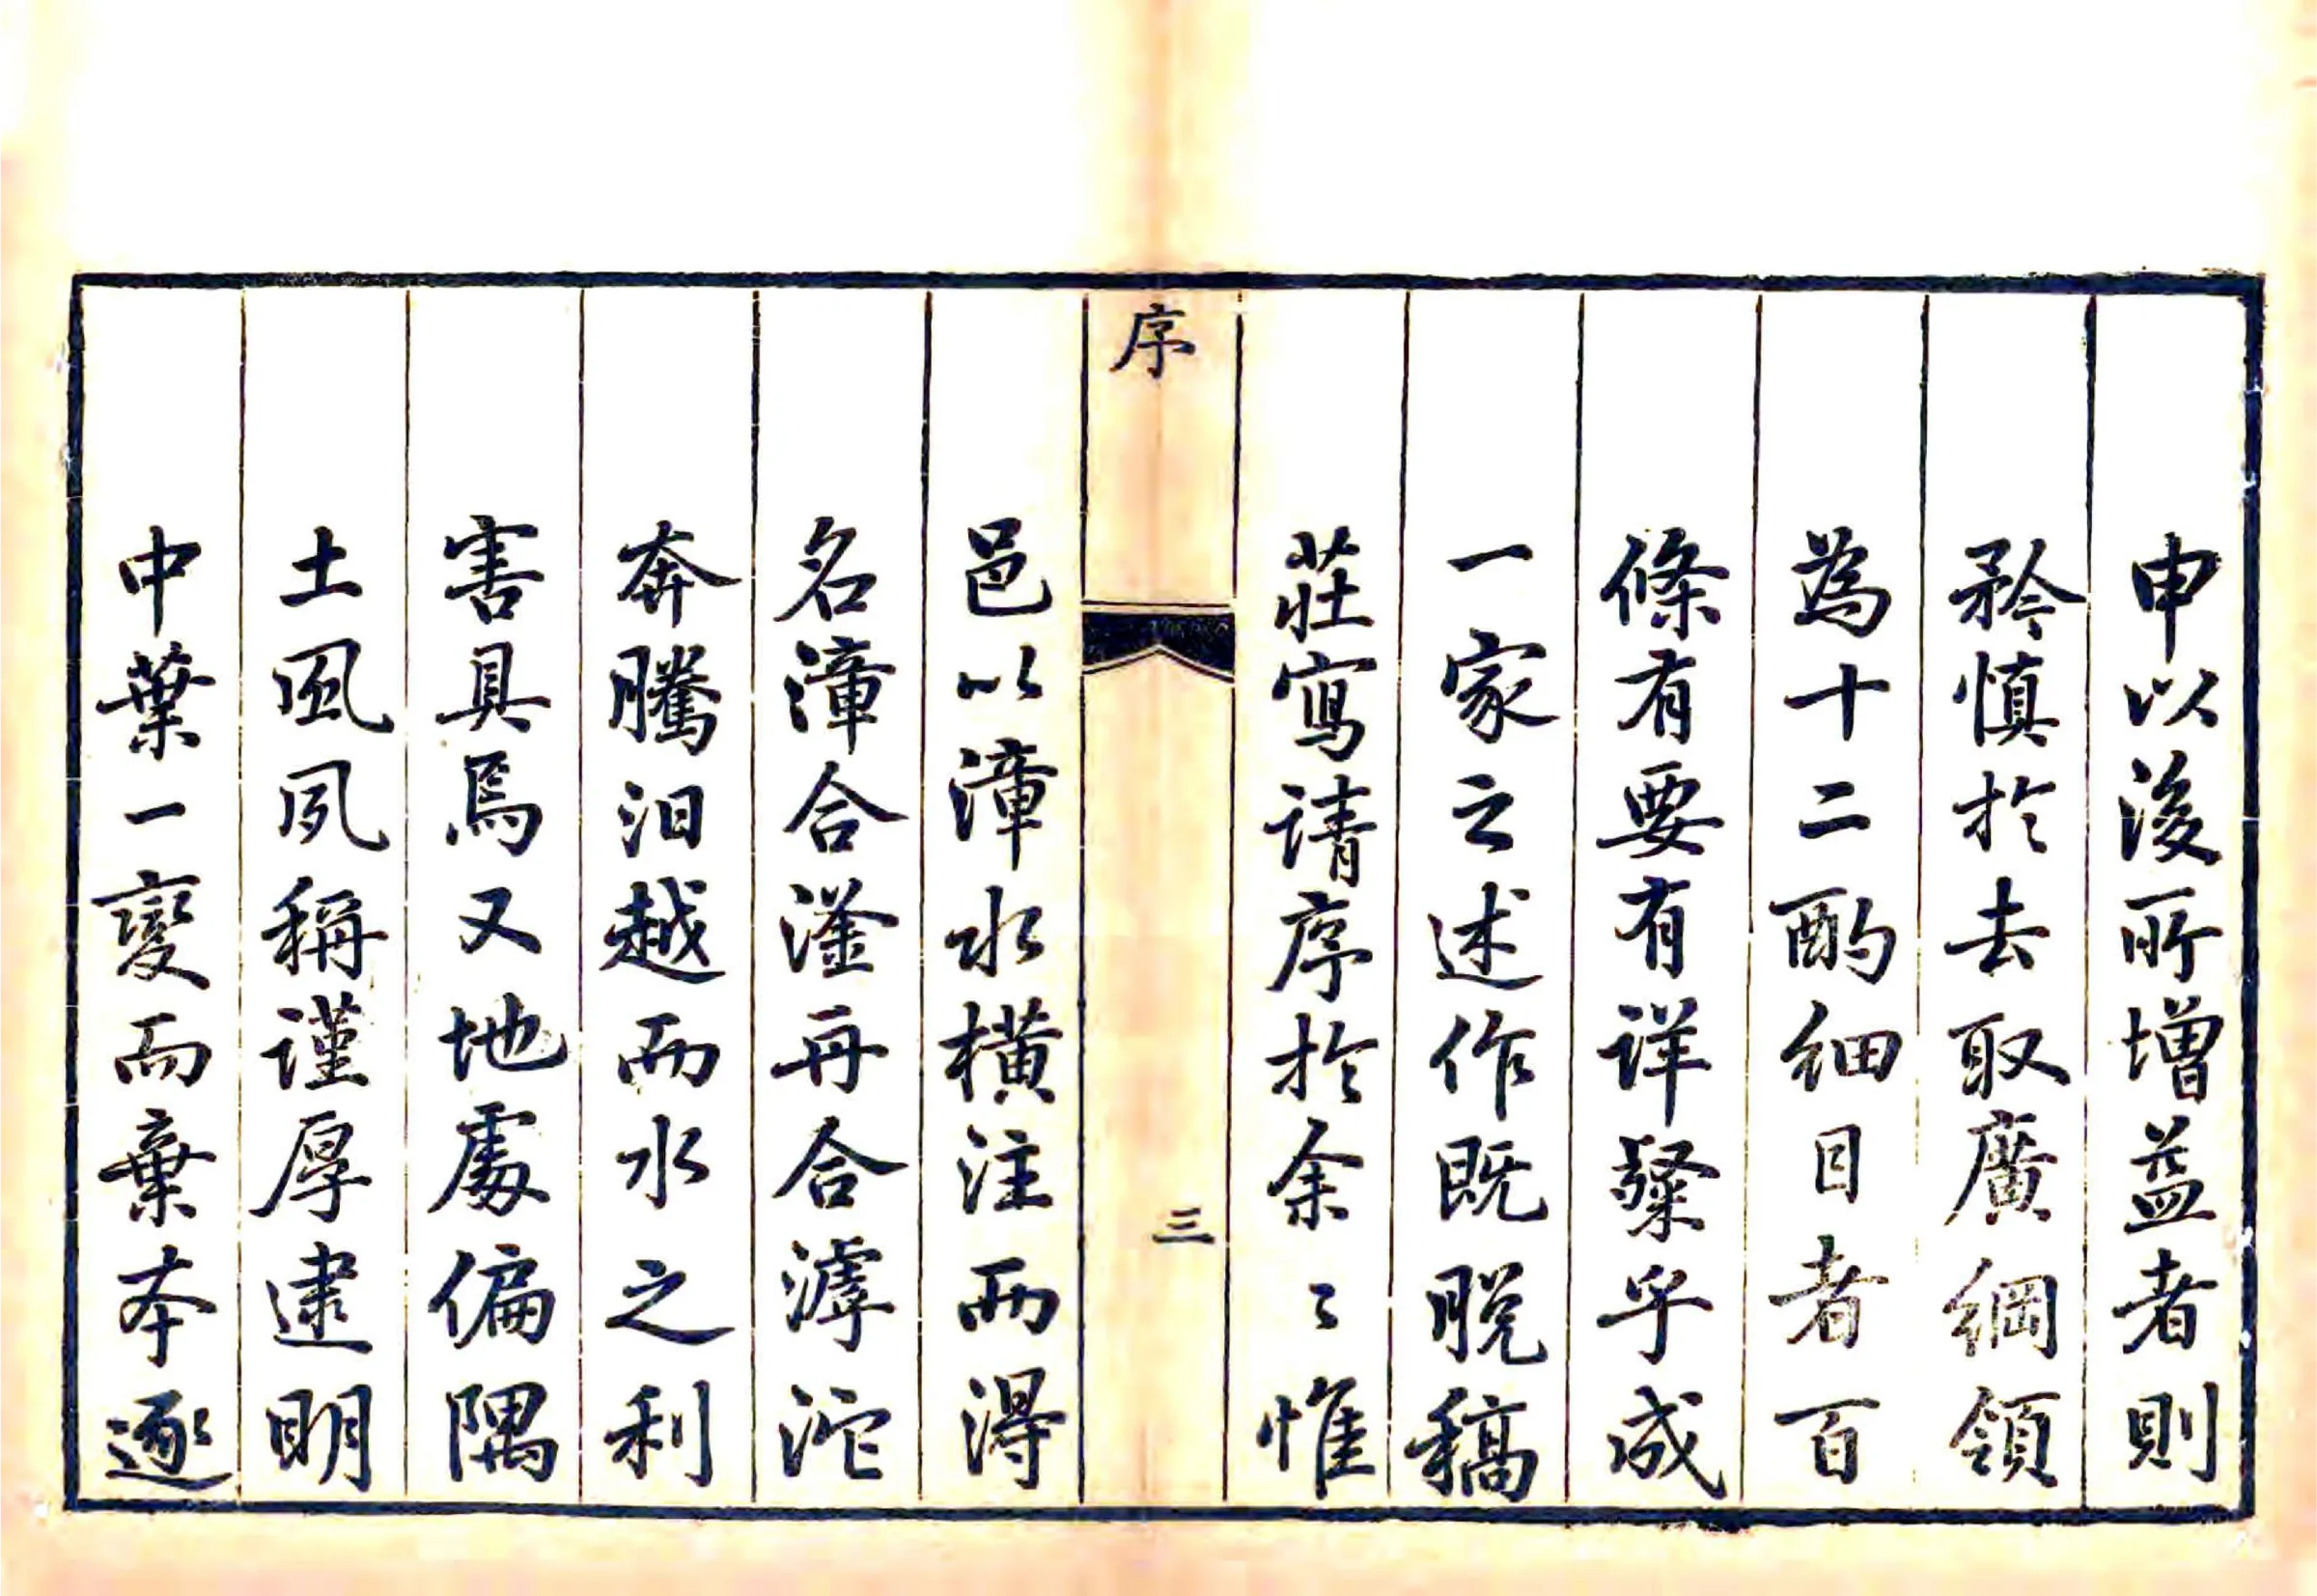 申以後所增益者則
矜慎於去取廣綱領
為十二酌細目者百
條有要有詳粲乎成
一家之述作既脫稿
莊寫請序於余〻惟
序
三
邑以漳水橫注而得
名漳合滏再合滹沱
奔騰汩越而水之利
害具焉又地處偏隅
土風夙稱謹厚逮明
中葉一變而棄本逐